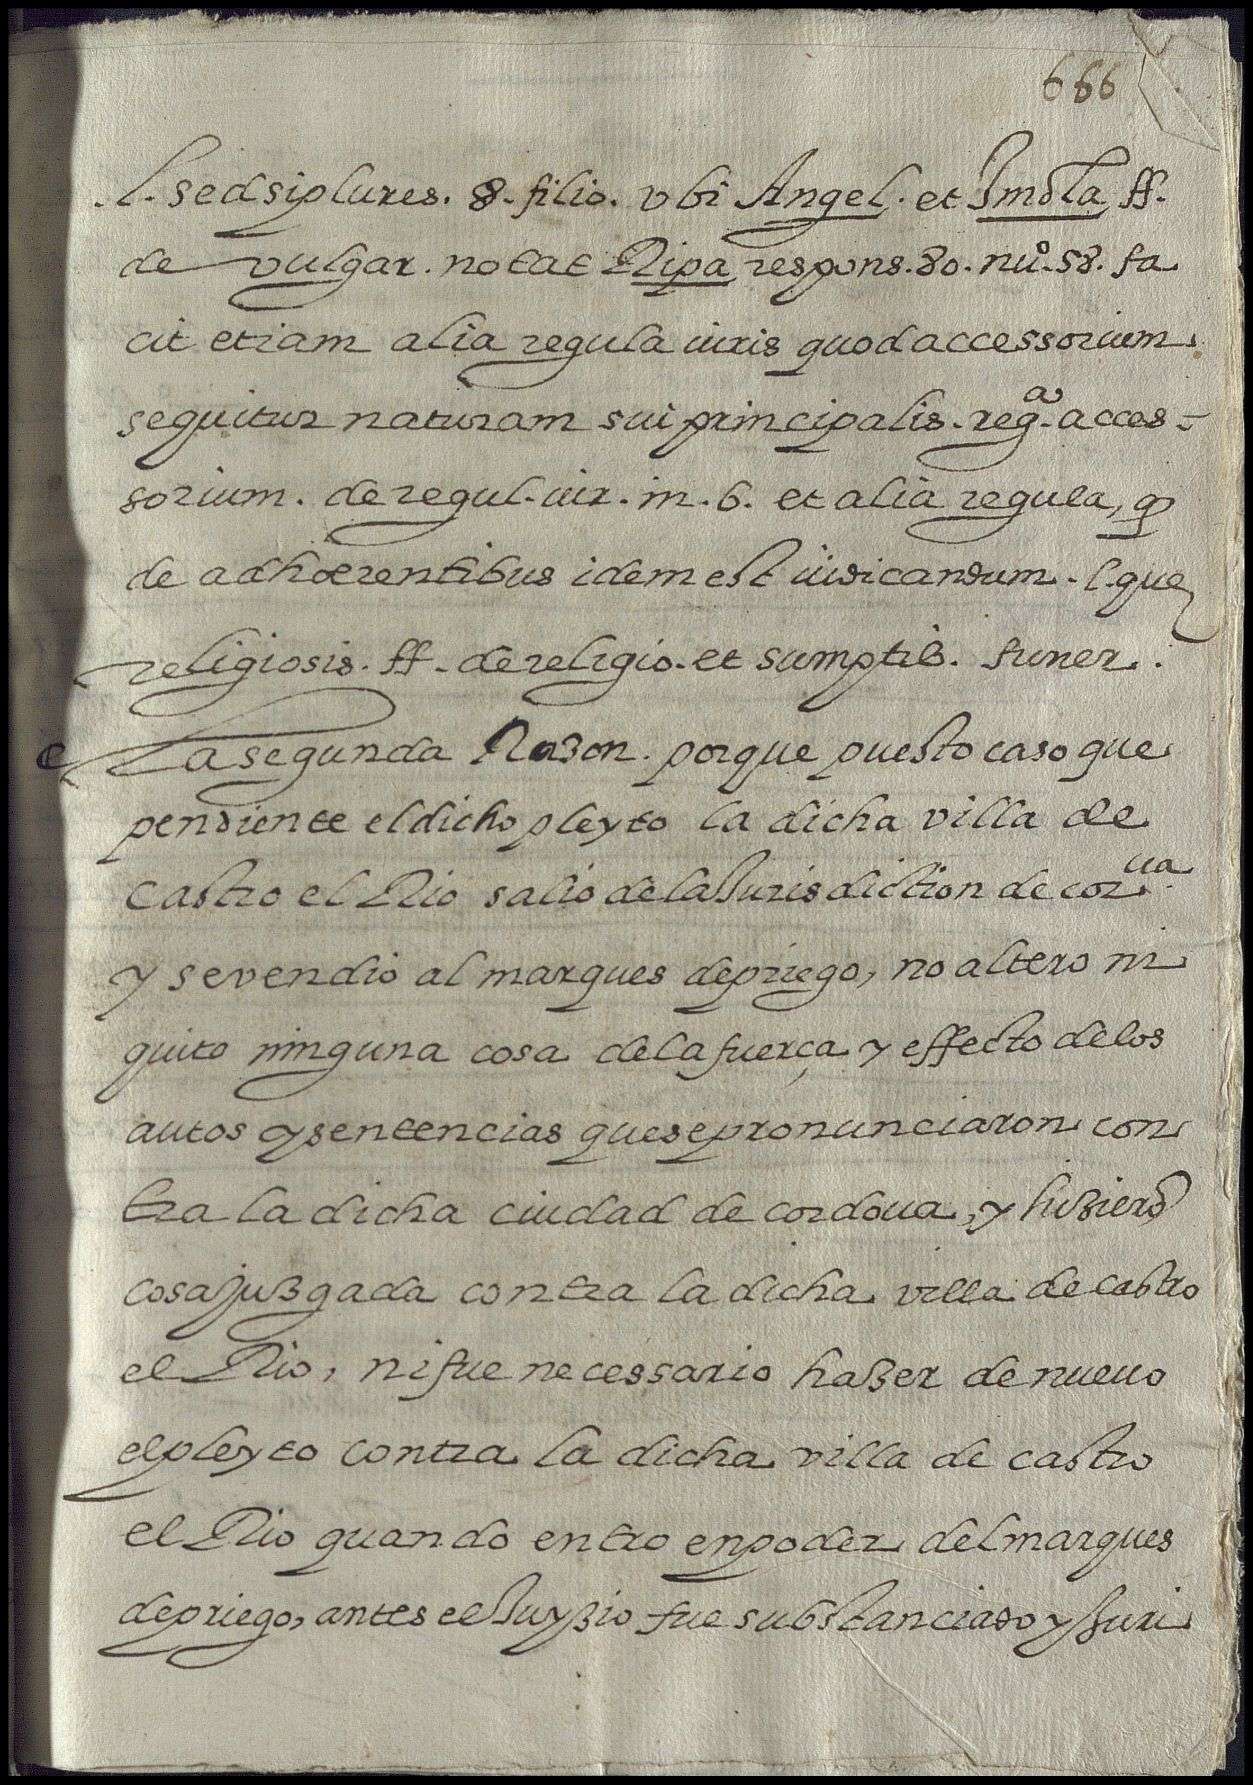 666
l. sed si plures. §. filio. vbi Angel. et Imola ff.
de vulgar. notat Ripa respons. 80. nuº. 58. fa
cit etiam alia regula iuris quod accessorium
sequitur naturam sui principalis. regª. acces-
sorium. de regul. iur. in. 6. et alia regula, q̃
de adhærentibus idem est iudicandum. l. que
religiosis. ff. de religio. et sumptib. funer.
La segunda Razon. porque puesto caso que
pendiente el dicho pleyto la dicha villa de
Castro el Rio salio de la Jurisdiction de corua
y se vendio al marques de priego, no altero ni
quito ninguna cosa de la fuerça y effecto de los
autos y sentencias que se pronunciaron con
tra la dicha ciudad de cordoua, y hizierõ
cosa juzgada contra la dicha villa de castro
el Rio, ni fue necessario hazer de nueuo
el pleyto contra la dicha villa de castro
el Rio quando entro en poder del marques
de priego, antes el Juyzio fue substanciado y Juri